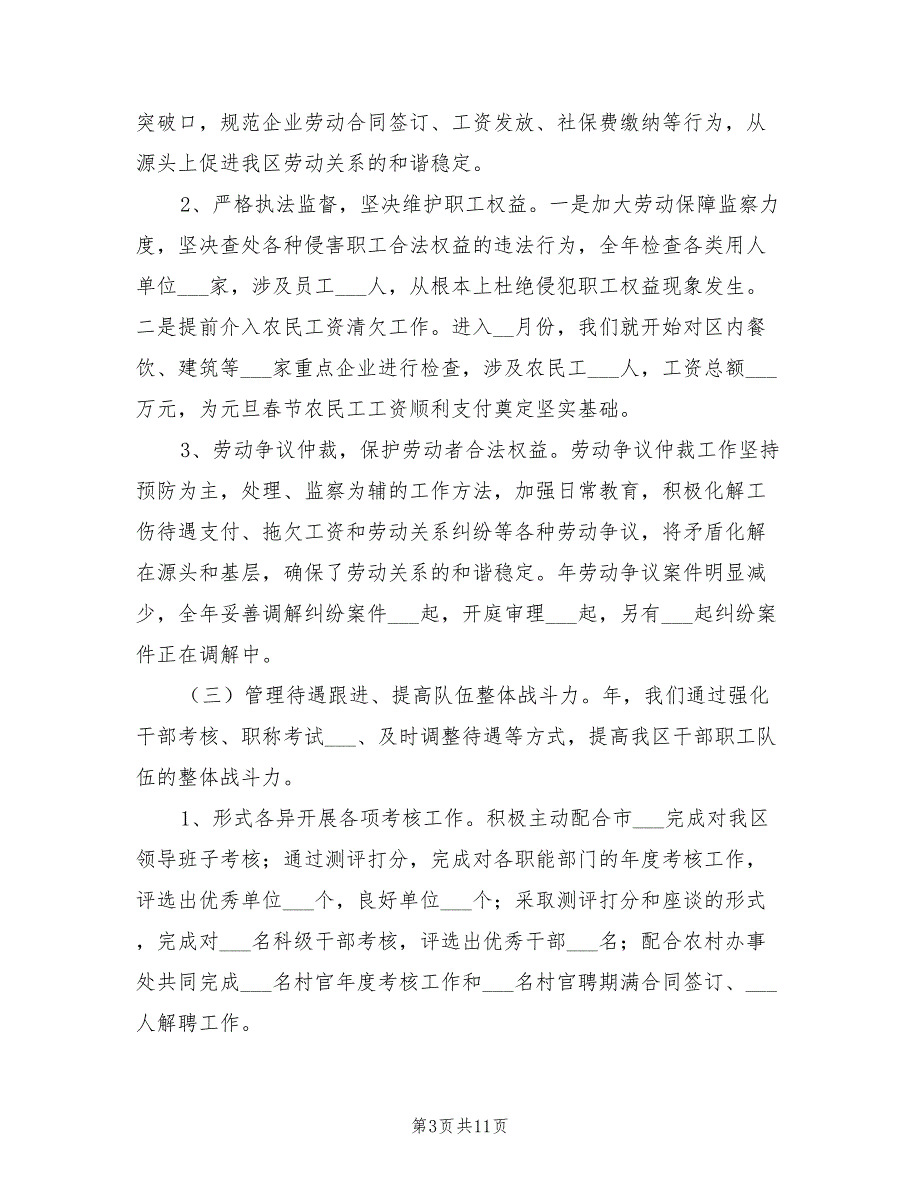 突破口，规范企业劳动合同签订、工资发放、社保费缴纳等行为，从
源头上促进我区劳动关系的和谐稳定。
2、严格执法监督，坚决维护职工权益。一是加大劳动保障监察力
度，坚决查处各种侵害职工合法权益的违法行为，全年检查各类用人
单位___家，涉及员工___人，从根本上杜绝侵犯职工权益现象发生。
二是提前介入农民工资清欠工作。进入__月份，我们就开始对区内餐
饮、建筑等___家重点企业进行检查，涉及农民工___人，工资总额___
万元，为元旦春节农民工工资顺利支付奠定坚实基础。
3、劳动争议仲裁，保护劳动者合法权益。劳动争议仲裁工作坚持
预防为主，处理、监察为辅的工作方法，加强日常教育，积极化解工
伤待遇支付、拖欠工资和劳动关系纠纷等各种劳动争议，将矛盾化解
在源头和基层，确保了劳动关系的和谐稳定。年劳动争议案件明显减
少，全年妥善调解纠纷案件___起，开庭审理___起，另有___起纠纷案
件正在调解中。
（三）管理待遇跟进、提高队伍整体战斗力。年，我们通过强化
干部考核、职称考试___、及时调整待遇等方式，提高我区干部职工队
伍的整体战斗力。
1、形式各异开展各项考核工作。积极主动配合市___完成对我区
领导班子考核；通过测评打分，完成对各职能部门的年度考核工作，
评选出优秀单位___个，良好单位___个；采取测评打分和座谈的形式
，完成对___名科级干部考核，评选出优秀干部___名；配合农村办事
处共同完成___名村官年度考核工作和___名村官聘期满合同签订、___
人解聘工作。
第3页共11页